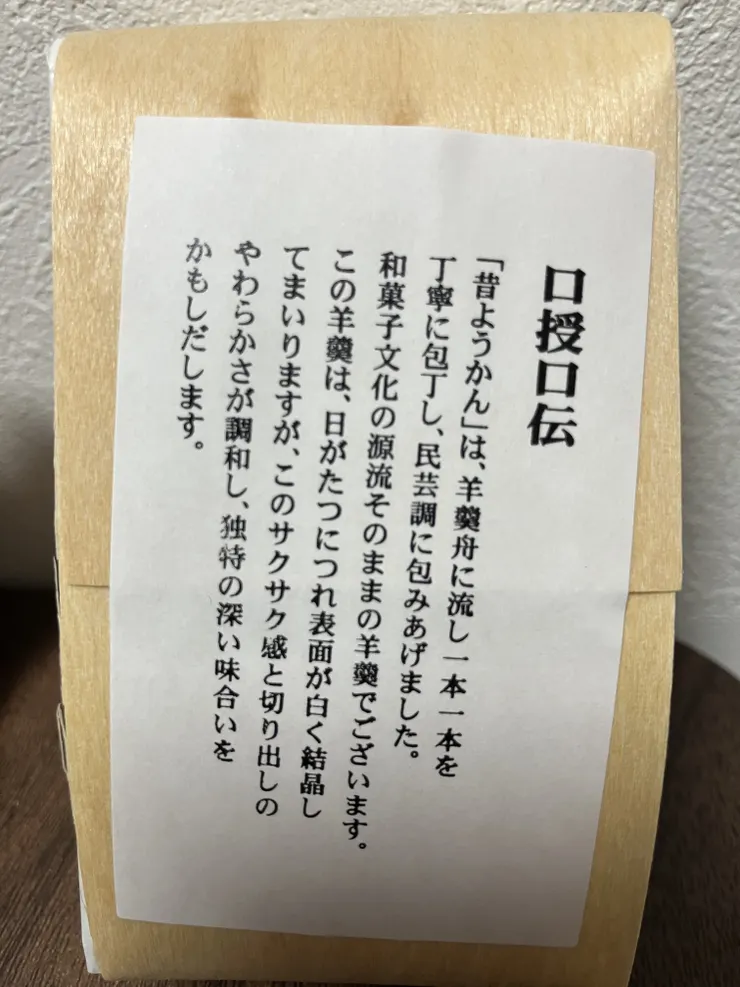 口授口伝
「昔ようかん」は、羊羹舟に流し一本一本を
丁寧に包丁し、民芸調に包みあげました。
和菓子文化の源流そのままの羊羹でございます。
この羊羹は、日がたつにつれ表面が白く結晶し
てまいりますが、このサクサク感と切り出しの
やわらかさが調和し、独特の深い味合いを
かもしだします。